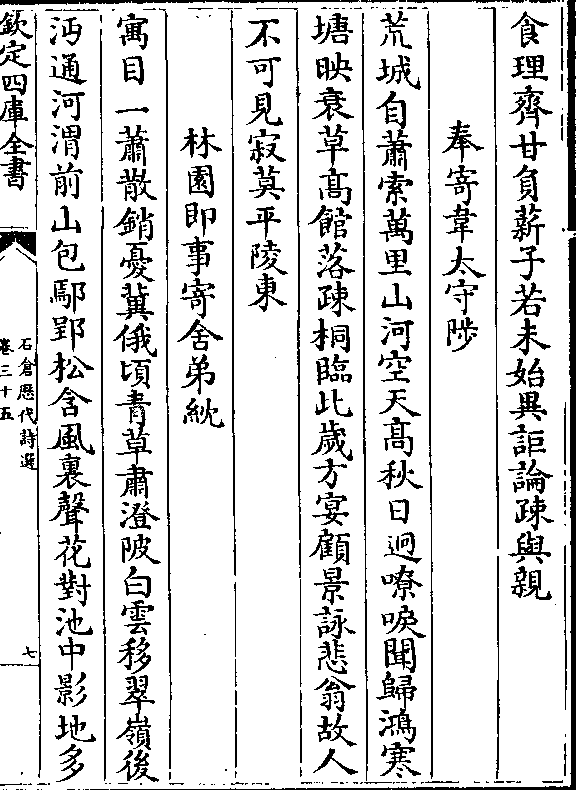 食理齊甘負薪子若未始異詎論疎與親
奉寄韋太守陟
荒城自蕭索萬里山河空天髙秋日迥嘹唳聞歸鴻寒
塘映衰草髙館落疎桐臨此歲方宴顧景詠悲翁故人
不可見寂莫平陵東
林園即事寄舍弟紞
寓目一蕭散銷憂冀俄頃青草肅澄陂白雲移翠嶺後
沔通河渭前山包鄢郢松含風裏聲花對池中影地多
欽定四庫全書
石倉歷代詩選
卷三十五
七